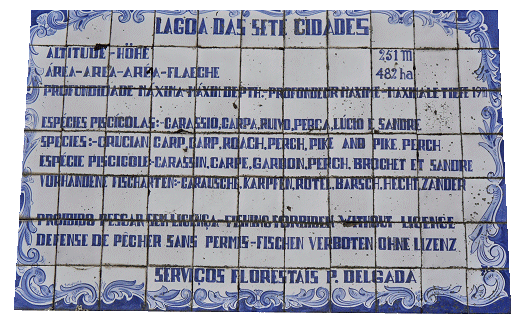 LAGOA DAS SETE CIDADES
ALTITUDE-HÖHE 251 m
ÁREA-AREA-AREA-FLAECHE 482 ha
PROFUNDIDADE MAXIMA-MAXIM DEPTH-PROFONDEUR MAXIME-MAXIMALE TIEFE
ESPÉCIES PISCÍCOLAS:-CARASSIO,CARPA,RUIVO,PERCA,LÚCIO E SANDRE
SPECIES:-CRUCIAN CARP,CARP,ROACH,PERCH,PIKE AND PIKE PERCH
ESPÉCIE PISCICOLE-CARASSIN,CARPE,GARDON,PERCH,BROCHET ET SANDRE
VORHANDENE FISCHARTEN:-CARAUSCHE,KARPFEN,ROTEL,BARSCH,HECHT,ZANDER
PROIBIDO PESCAR SEM LICENÇA-FISHING FORBIDEN WITHOUT LICENCE
DEFENSE DE PÉCHER SANS PERMIS-FISCHEN VERBOTEN OHNE LIZENZ
SERVIÇOS FLORESTAIS P. DELGADA